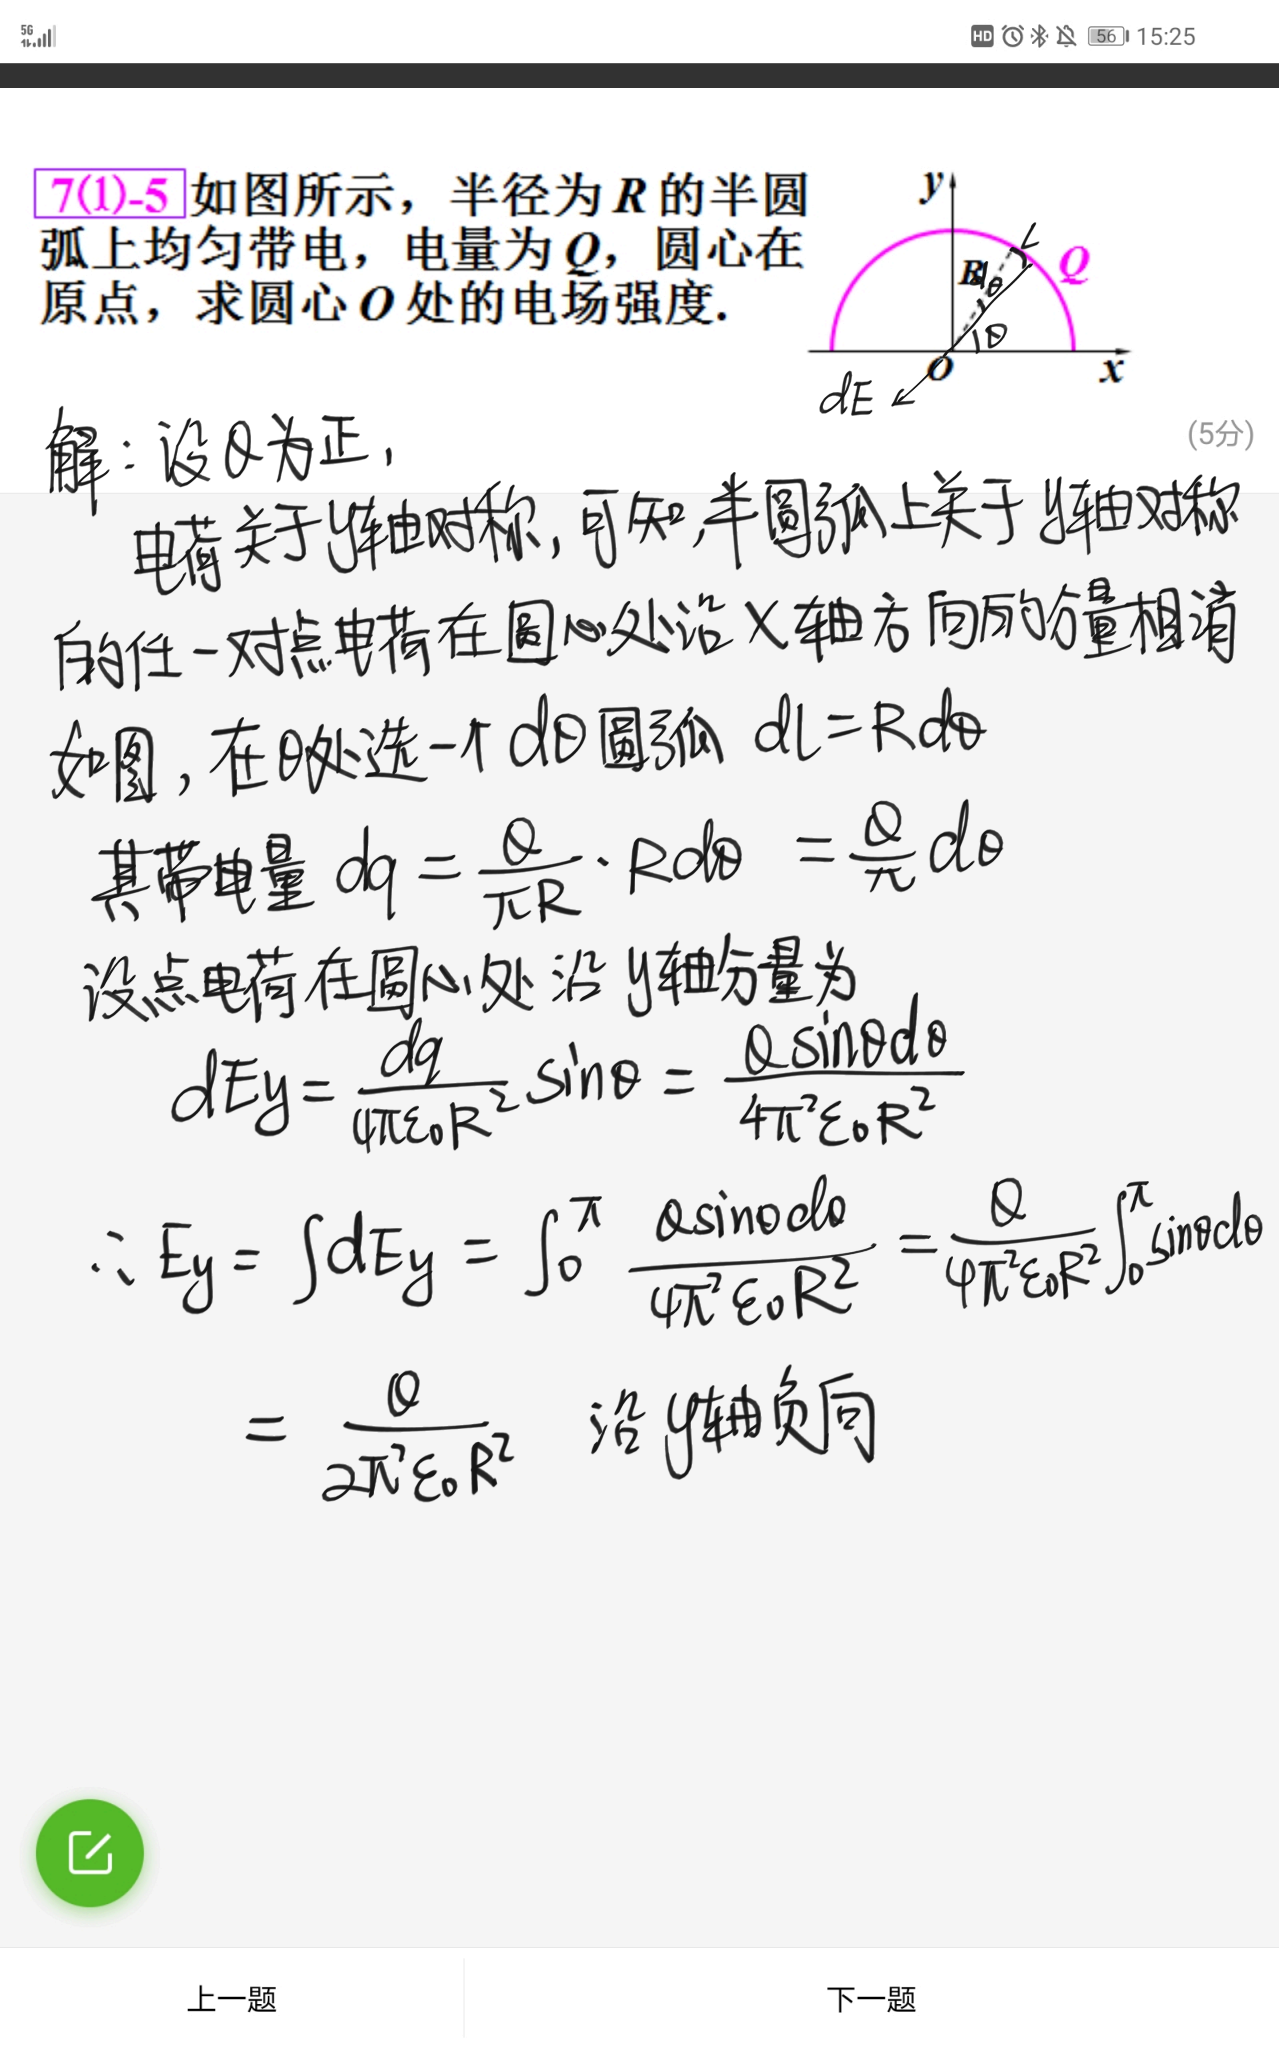 5G HD 56 15:25
7(1)-5 如图所示，半径为 R 的半圆
弧上均匀带电，电量为 Q，圆心在
原点，求圆心 O 处的电场强度.
y
L
Q
R dθ
θ
O
x
dE
(5分)
解：设Q为正，
电荷关于y轴对称，可知，半圆弧上关于y轴对称
的任一对点电荷在圆心处沿x轴方向的分量相消
如图，在θ处选一个dθ圆弧 dl=Rdθ
其带电量 dq = Q/πR · Rdθ = Q/π dθ
设点电荷在圆心处沿y轴分量为
dEy = dq/4πε₀R² sinθ = Qsinθdθ/4π²ε₀R²
∴ Ey = ∫dEy = ∫₀^π Qsinθdθ/4π²ε₀R² = Q/4π²ε₀R² ∫₀^π sinθdθ
= Q/2π²ε₀R² 沿y轴负向
上一题 下一题